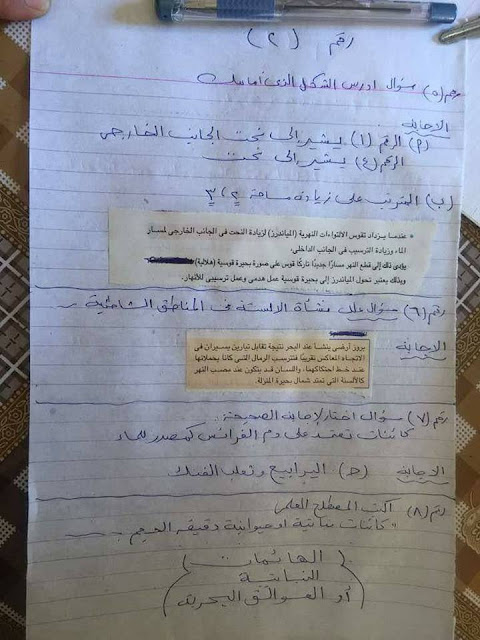 رقم (٢)
رقم (٥) سؤال ادرس الشكل الذى أمامك
الإجابة
(P) الرقم (١) يشير إلى نحت الجانب الخارجى
الرقم (٤) يشير إلى نحت
(ب) المترتب على زيادة مساحة ٢، ٣
* عندما يزداد تقوس الالتواءات النهرية (المياندرز) لزيادة النحت فى الجانب الخارجى لمسار
الماء وزيادة الترسيب فى الجانب الداخلى.
يؤدى ذلك إلى قطع النهر مسارًا جديدًا تاركًا قوس على صورة بحيرة قوسية (هلالية)
وبذلك يعتبر تحول المياندرز إلى بحيرة قوسية عمل هدمى وعمل ترسيبى للأنهار.
رقم (٦) سؤال علل نشأة الألسنة فى المناطق الشاطئية
الإجابة
بروز أرضى ينشأ عند البحر نتيجة تقابل تيارين يسيران فى
الاتجاه المعاكس تقريبًا فتترسب الرمال التى كانا يحملانها
عند خط احتكاكهما، واللسان قد يتكون عند مصب النهر
كالألسنة التى تمتد شمال بحيرة المنزلة.
رقم (٧) سؤال اختار الإجابة الصحيحة
كائنات تعتمد على دم الفرائس كمصدر للماء
الإجابة (ج) اليرابيع وثعلب الفنك
رقم (٨) اكتب المصطلح العلمى
" كائنات نباتية أو حيوانية دقيقة الحجم
الهائمات
النباتية
أو العوالق البحرية